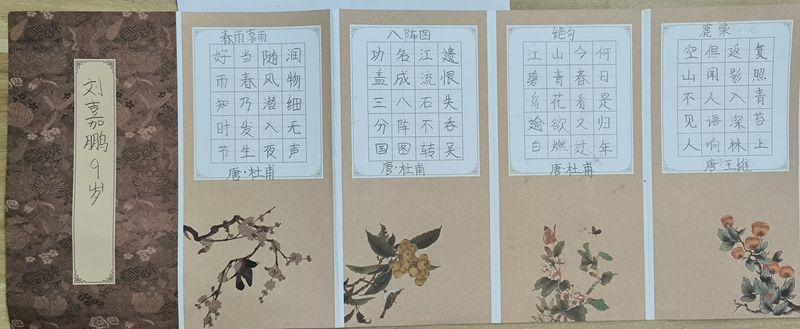 刘嘉鹏9岁
春雨喜雨
好雨知时节
当春乃发生
随风潜入夜
润物细无声
唐·杜甫
八阵图
功盖三分国
名成八阵图
江流石不转
遗恨失吞吴
唐·杜甫
绝句
江碧鸟逾白
山青花欲燃
今春看又过
何日是归年
唐·杜甫
鹿柴
空山不见人
但闻人语响
返影入深林
复照青苔上
唐·王维